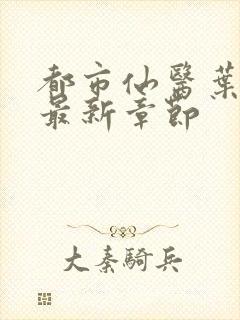 都市仙醫葉
最新章節
大秦騎兵